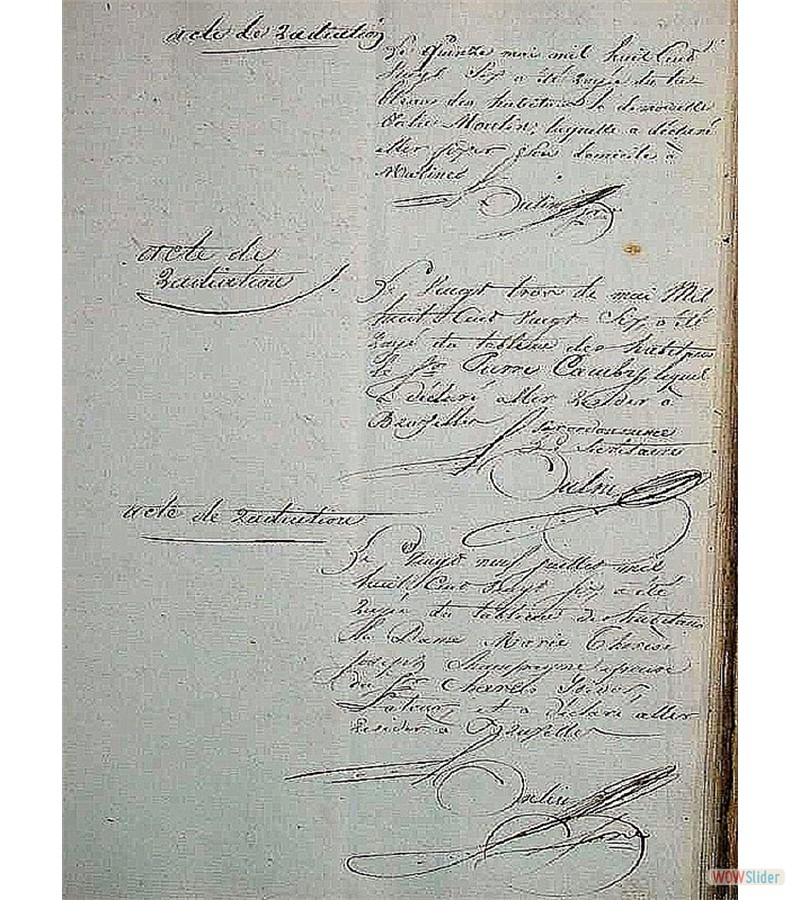 acte de radiation
Le quinze mai mil huit Cent
vingt Six a été rayée du ta-
bleau des habitans la demoiselle
Moulin, laquelle a déclaré
aller fixer son domicile à
Malines
acte de
radiation
Le Vingt trois de mai Mil
huit Cent Vingt Six a été
rayé du tableau des habitans
le Sr Pierre lequel
a déclaré aller résider a
Bruxelles par ordonnance
Secrétaire
acte de radiation
Le Vingt neuf juillet mil
huit Cent Vingt Six a été
rayé du tableau des habitans
la Dame Marie Thérèse
Joseph Champagne épouse
du Sr Charles
et a déclaré aller
résider à Bruxelles
WOWSlider